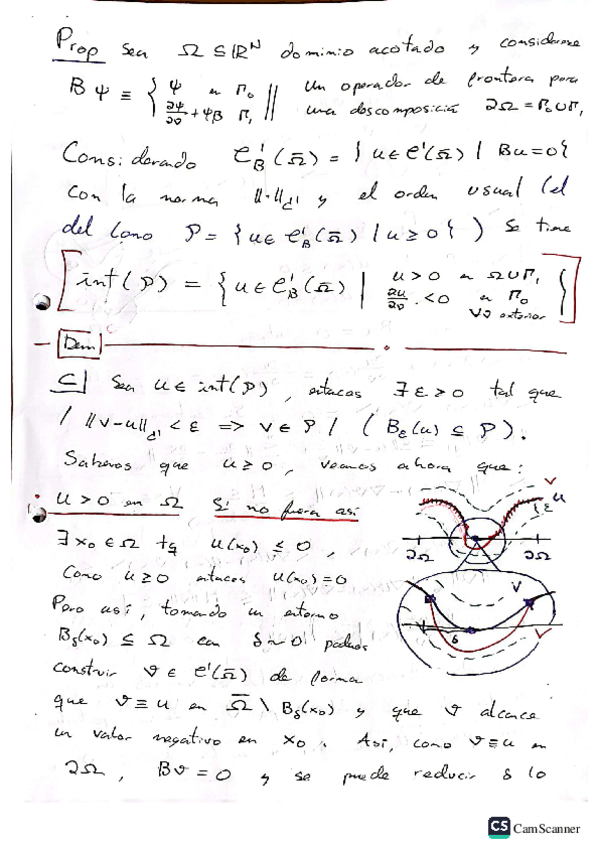 Prop Sea Ω ⊆ ℝᴺ dominio acotado y considerese
Bψ ≡ { ψ en Γ₀ || Un operador de frontera para
∂ψ/∂ν + ψβ Γ₁ || una descomposición ∂Ω = Γ₀ ∪ Γ₁
Considerando C¹_B(Ω̄) = { u ∈ C¹(Ω̄) | Bu = 0 }
con la norma ||·||_C¹ y el orden usual (el
del cono P = { u ∈ C¹_B(Ω̄) | u ≥ 0 } ) se tiene
int(P) = { u ∈ C¹_B(Ω̄) | u > 0 en Ω ∪ Γ₁
∂u/∂ν < 0 en Γ₀ }
∀ν exterior
Dem
⊂] Sea u ∈ int(P), entonces ∃ ε > 0 tal que
/ ||v-u||_C¹ < ε ⟹ v ∈ P / ( B_ε(u) ⊆ P ).
Sabemos que u ≥ 0, veamos ahora que:
· u > 0 en Ω Si no fuera así
∃ x₀ ∈ Ω tq u(x₀) ≤ 0,
Como u ≥ 0 entonces u(x₀) = 0
Pero así, tomando un entorno
B_δ(x₀) ⊆ Ω con δ ~ 0 podemos
construir v ∈ C¹(Ω̄) de forma
que v ≡ u en Ω̄ \ B_δ(x₀) y que v alcance
un valor negativo en x₀. Así, como v ≡ u en
∂Ω, Bv = 0 y se puede reducir δ lo
v
u
ε
∂Ω
∂Ω
v
δ
CS CamScanner